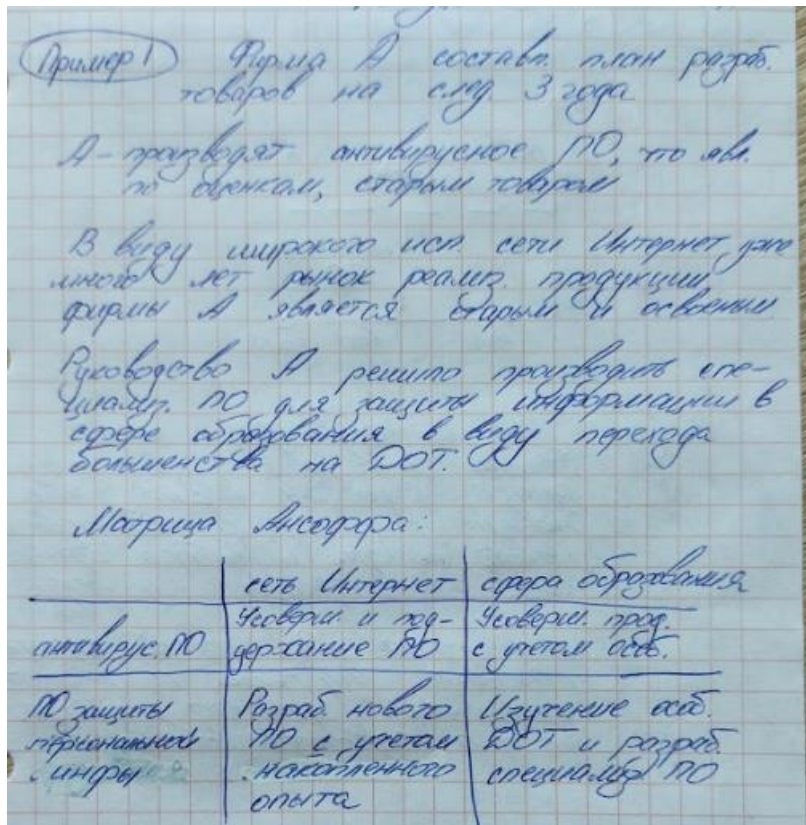 Пример 1 Фирма А составл. план разраб.
товаров на след. 3 года
А – производят антивирусное ПО, что явл.
по оценкам, старым товаром
В виду широкого исп. сети Интернет уже
много лет рынок реализ. продукции
фирмы А является старым и освоенным
Руководство А решило производить спе-
циализ. ПО для защиты информации в
сфере образования в виду перехода
большенства на ДОТ.
Матрица Ансоффа:
сеть Интернет сфера образования
антивирус. ПО
Усоверш. и под-
держание ПО
Усоверш. прод.
с учетом особ.
ПО защиты
персональной
инфы
Разраб. нового
ПО с учетом
накопленного
опыта
Изучение особ.
ДОТ и разраб.
специализ ПО